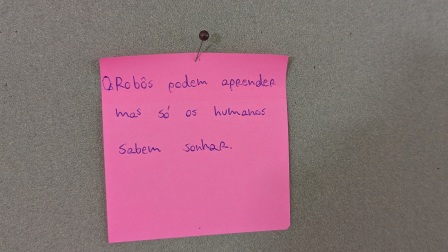 Os Robôs podem aprender
mas só os humanos
sabem sonhar.